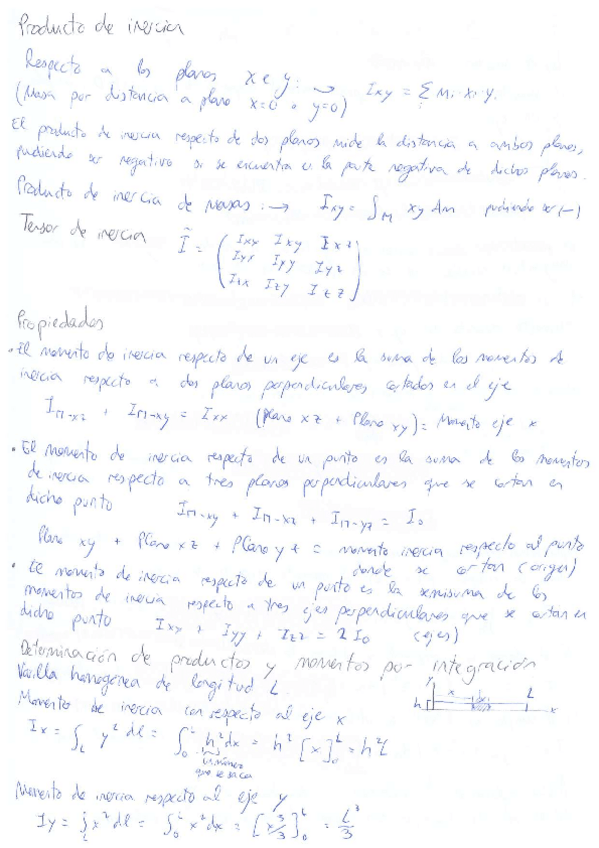 Producto de inercia
Respecto a los planos x e y: → Ixy = Σ mi·xi·yi
(Masa por distancia a plano x=0 o y=0)
El producto de inercia respecto de dos planos mide la distancia a ambos planos,
pudiendo ser negativo si se encuentra en la parte negativa de dichos planos.
Producto de inercia de masas: → Ixy = ∫M xy dm pudiendo ser (-)
Tensor de inercia Ĩ = ( Ixx Ixy Ixz
Iyx Iyy Iyz
Izx Izy Izz )
Propiedades
• El momento de inercia respecto de un eje es la suma de los momentos de
inercia respecto a dos planos perpendiculares cortados en el eje
Iπ-xz + Iπ-xy = Ixx (Plano xz + Plano xy) = Momento eje x
• El momento de inercia respecto de un punto es la suma de los momentos
de inercia respecto a tres planos perpendiculares que se cortan en
dicho punto Iπ-xy + Iπ-xz + Iπ-yz = Io
Plano xy + Plano xz + Plano yz = momento inercia respecto al punto
donde se cortan (origen)
• El momento de inercia respecto de un punto es la semisuma de los
momentos de inercia respecto a tres ejes perpendiculares que se cortan en
dicho punto Ixx + Iyy + Izz = 2 Io (ejes)
Determinación de productos y momentos por integración
Varilla homogénea de longitud L
Momento de inercia con respecto al eje x
y
h
x
dx
L
x
Ix = ∫L y² dl = ∫0^L h² dx = h² [x]0^L = h²L
un número
que se saca
Momento de inercia respecto al eje y
Iy = ∫L x² dl = ∫0^L x² dx = [x³/3]0^L = L³/3